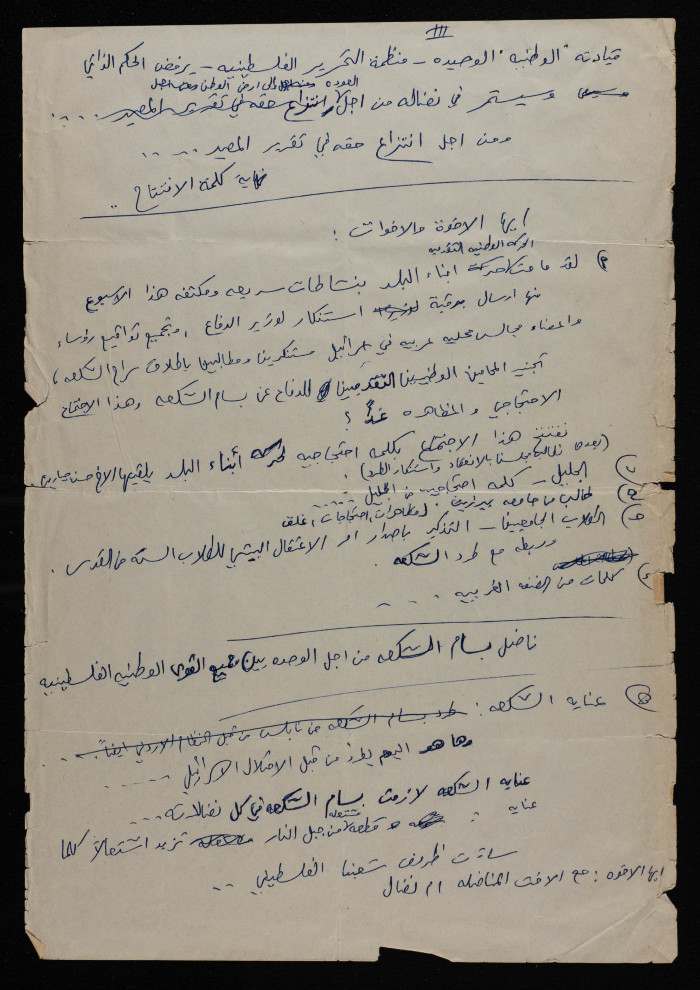 III
قيادته "الوطنية" الوحيده - منظمة التحرير الفلسطينيه - يرفض الحكم الذاتي
العوده الى ارض الوطن
وسيستمر في نضاله من اجل انتزاع حقه في تقرير المصير ....
ومن اجل انتزاع حقه في تقرير المصير ....
نهاية كلمة الافتتاح ..
ايها الاخوة والاخوات :
الحركه الوطنيه التقدميه
لقد قامت حركة ابناء البلد بنشاطات سريعه ومكثفه هذا الاسبوع
منها ارسال برقية استنكار لوزير الدفاع ، وتجميع تواقيع رؤساء
واعضاء مجالس محليه عربيه في اسرائيل مستنكرين ومطالبين باطلاق سراح الشكعه ،
تجنيد المحامين الوطنيين التقدميين للدفاع عن بسام الشكعه وهذا الاجتماع
الاحتجاجي والمظاهره غداً ؟
نفتتح هذا الاجتماع بكلمه احتجاجيه لحركه أبناء البلد يلقيها الاخ حسن جبارين
الجليل - كلمه احتجاجيه من الجليل ....
طالب من جامعه بيرزيت . لمظاهرات ، احتجاجات ، اغلاق
الطلاب الجامعيين - التذكير باصدار امر الاعتقال البيتي للطلاب السته من القدس .
وربطه مع طرد الشكعه .
كلمات من الضفه الغربيه ....
ناضل بسام الشكعه من اجل الوحده بين جميع القوى الوطنيه الفلسطينيه
عنايه الشكعه : طرد بسام الشكعه من نابلس من قبل النظام الاردني ايضاً ..
وها هو اليوم يطرد من قبل الاحتلال الاسرائيلي ....
عنايه الشكعه لازمت بسام الشكعه في كل نضالاته ...
عنايه : قطعه مشتعله من جبل النار تزيد اشتعالاً كلما
ساءت ظروف شعبنا الفلسطيني ..
ايها الاخوه : مع الاخت المناضله ام نضال